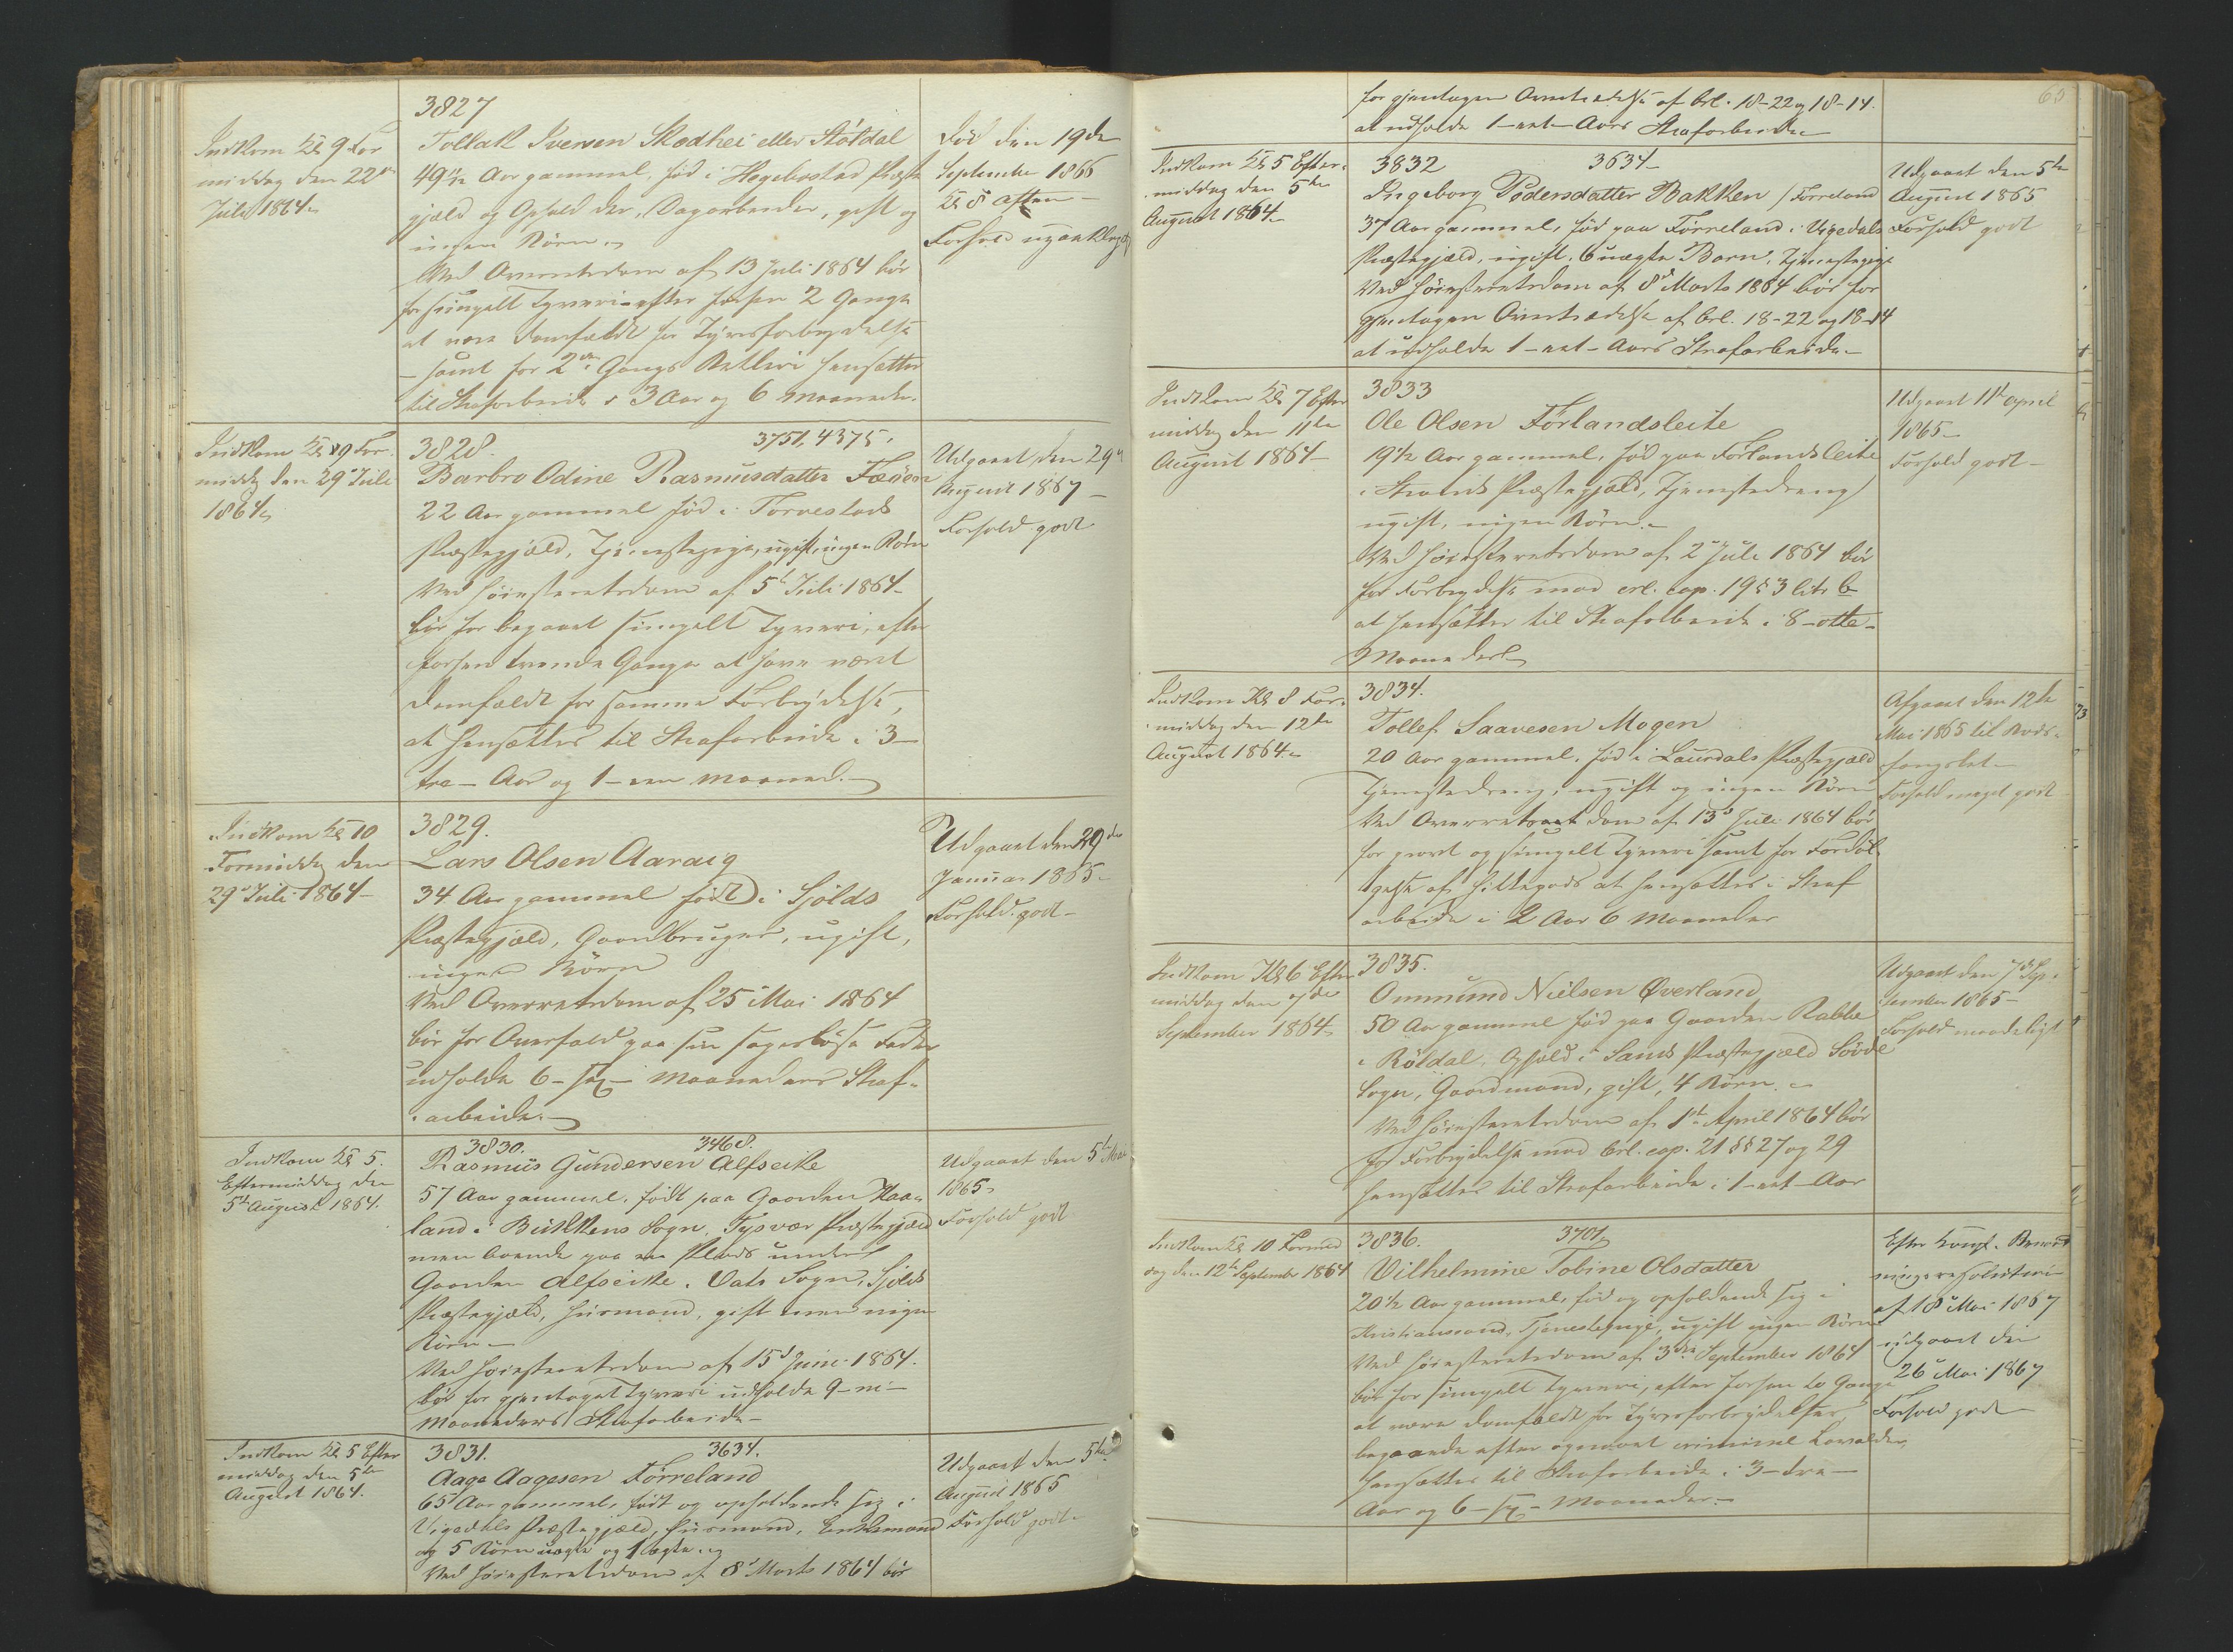 3827
Indkom Kl 9 For
middag den 22de
Juli 1864
Tollak Iversen Skodhei eller Støldal
49 1/2 Aar gammel, fød i Hegebostad Præste
gjæld og Ophold der, Dagarbeider, gift og
ingen Børn
Ved Overretsdom af 13 Juli 1864 bør
for simpelt Tyveri efter forhen 2 Gange
at være domfældt for Tyvsforbrydelse
samt for 2den Gangs Betleri hensættes
til Strafarbeide i 3 Aar og 6 Maaneder.
Død den 19de
September 1866
Kl 8 aften
Forhold upaaklag
Indkom Kl 9 For
midd den 29 Juli
1864
3828. 3751, 4375.
Barbro Odine Rasmusdatter Fæøen
22 Aar gammel fød i Torvestads
Præstegjæld, Tjenestepige, ugift, ingen Børn
Ved Høiesteretsdom af 5 Juli 1864
bør for begaaet simpelt Tyveri, efter
forhen trende Gange at have været
domfældt for samme Forbrydelse,
at hensættes til Strafarbeide i 3
tre Aar og 1 - een Maaned.
Udgaaet den 29
August 1867
Forhold godt
Indkom Kl 10
Formiddag den
29 Juli 1864
3829.
Lars Olsen Aaraig
34 Aar gammel født i Sjølds
Præstegjæld, Gaardbruger, ugift,
ingen Børn
Ved Overretsdom af 25 Mai 1864
bør for Overfald paa sin sagesløse Fader
udholde 6 - sex - Maaneders Straf-
arbeide.
Udgaaet den 29de
Januar 1865
Forhold godt
Indkom Kl 5.
Eftermiddag den
5te August 1864.
3830. 3468.
Rasmus Gundersen Alfseike
57 Aar gammel, født paa Gaarden Haa-
land i Bukkens Sogn, Tysvær Præstegjæld
men boende paa en Plads under
Gaarden Alfseike i Vats Sogn, Sjølds
Præstegjæld, Huusmand, gift men ingen
Børn
Ved Høiesteretsdom af 15 Juni 1864.
bør for gjentaget Tyveri udholde 9 - ni -
Maaneders Strafarbeide
Udgaaet den 5te Mai
1865
Forhold godt
Indkom Kl 5 Efter
middag den 5te
August 1864.
3831. 3634.
Aage Aagesen Førreland
65 Aar gammel, født og opholdende sig i
Vigedahls Præstegjæld, Huusmand, Enkemand
og 5 Børn uægte og 1 ægte
Ved Høiesteretsdom af 8 Marts 1864 bør
Udgaaet den 5te
August 1865
Forhold godt
65
for gjentagen Overtrædelse af Crl. 18-22 og 18-14.
at udholde 1 - eet - Aars Strafarbeide
Indkom Kl 5 Efter-
middag den 5te
August 1864
3832 3634
Ingeborg Pedersdatter Bakken / Førreland
37 Aar gammel, fød paa Førreland i Vigedals
Præstegjæld, ugift, 6 uægte Børn, Tjenestepige
Ved Høiesteretsdom af 8 Marts 1864 bør for
gjentagen Overtrædelse af Crl. 18-22 og 18-14
at udholde 1 - eet - Aars Strafarbeide
Udgaaet den 5te
August 1865
Forhold godt
Indkom Kl 7 Efter
middag den 11te
August 1864
3833
Ole Olsen Førlandsleite
19 1/2 Aar gammel, fød paa Førlandsleite
i Strands Præstegjæld, Tjenestedreng
ugift, ingen Børn.
Ved Høiesteretsdom af 2 Juli 1864 bør
for Forbrydelse mod crl. cap. 19 § 3 litr b
at hensættes til Strafarbeide i 8 - otte -
Maaneder
Udgaaet 11te April
1865
Forhold godt
Indkom Kl 8 For-
middag den 12te
August 1864.
3834.
Tollef Saavesen Mogen
20 Aar gammel, fød i Laurdals Præstegjæld
Tjenestedreng, ugift og ingen Børn
Ved Overretsdom af 13 Juli 1864 bør
for grovt og simpelt Tyveri samt for Fordøl-
gelse af Hittegods at hensættes i Straf
arbeide i 2 Aar 6 Maaneder
Afgaaet den 12te
Mai 1865 til Bods-
fængslet
Forhold meget godt
Indkom Kl 6 Efter
middag den 7de
September 1864
3835.
Ommund Nielsen Øverland
50 Aar gammel fød paa Gaarden Rabbe
i Røldal. Ophold i Sands Præstegjæld Søvde
Sogn, Gaardmand, gift, 4 Børn.
Ved Høiesteretsdom af 1te April 1864 bør
for Forbrydelse mod Crl. cap. 21 §§ 27 og 29
hensættes til Strafarbeide i 1 - eet - Aar
Udgaaet den 7 Sep-
tember 1865
Forhold maadeligt
Indkom Kl 10 Formid
dag den 12te September 1864
3836. 3701
Vilhelmine Tobine Olsdatter
20 1/2 Aar gammel, fød og opholdende sig i
Kristianssand, Tjenestepige, ugift ingen Børn
Ved Høiesteretsdom af 3die September 1864
bør for simpelt Tyveri, efter forhen to Gange
at være domfældt for Tyvsforbrydelser
begaaede efter opnaaet criminel Lavalder,
hensættes til Strafarbeide i 3 - tre -
Aar og 6 - sex - Maaneder.
Efter kongl. Benaad
ningsresolution
af 18 Mai 1867
udgaaet den
26 Mai 1867
Forhold godt